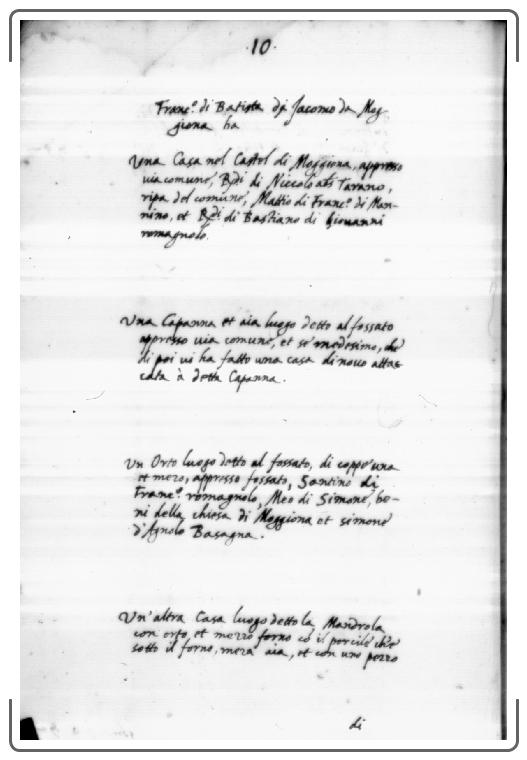 ·10·
Franc.º di Batista di Jacomo da Mog-
giona ha
Una Casa nel Castel di Moggiona, appresso
via comune, Rᵈⁱ di Niccolo als Tarano,
ripa del comune, Matteo di Franc.º di Man-
nino, et Rᵈⁱ di Bastiano di Giovanni
romagnolo.
Una Capanna et aia luogo detto al fossato
appresso via comune, et se medesimo, che
di poi vi ha fatto una casa di novo attac-
cata à detta Capanna.
Un Orto luogo detto al fossato, di coppe una
et mezo, appresso fossato, Santino di
Franc.º romagnolo, Meo di Simone, be-
ni della chiesa di Moggiona et simone
d'Agnolo Basagna.
Un'altra Casa luogo detto la Mandrola
con orto, et mezzo forno cō il porcile ch'è
sotto il forno, meza aia, et con uno pezzo
di